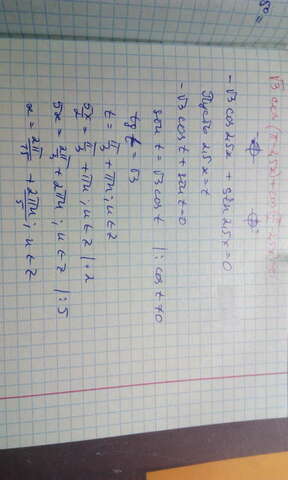 -√3 cos 2,5x + sin 2,5x = 0
Пусть 2,5x = t
-√3 cos t + sin t = 0
sin t = √3 cos t |: cos t ≠ 0
tg t = √3
t = π/3 + πn; n ∈ Z
5x/2 = π/3 + πn; n ∈ Z | · 2
5x = 2π/3 + 2πn; n ∈ Z |: 5
x = 2π/15 + 2πn/5; n ∈ Z